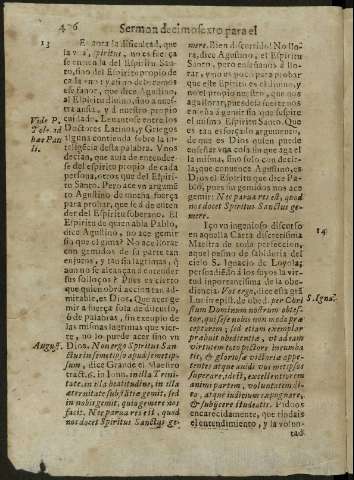 406
Sermon decimosexto para el
13
es la dificultad, que
la voz, spiritus, no es fuerça
se entienda del Espiritu San-
to, sino del Espiritu propio de
cada
es fanor, que dize Agustino,
al Espiritu divino, sino a nues-
tra ansia, y a nuestro propio
Vide P.
Tolet. in
hac Pau
li.
cuidado. Levantose entre los
Doctores Latinos, y Griegos
alguna contienda sobre la in-
teligēcia desta palabra. Vnos
dezian, que auia de entender-
se del espiritu propio de cada
persona, otros que del Espiri-
tu Santo. Pero ace vn argumē
to Agustino de mucha fuerça
para probar, que se à de enten
der del Espiritu soberano. El
Espiritu de quien habla Pablo,
dize Agustino, no ace gemir
sia que el gima? No ace llorar
con gemidos de su parte tan
enjutos, y tan sin lagrimas, q̃
aun no se alcançan à entender
sus solloços? Pues es cierto
que quien obra accion tan ad-
mirable, es Dios. Que acer ge
mir à fuerça sola de discurso,
ò de palabras, sin exemplo de
las mismas lagrimas que vier-
te, no lo puede acer sino vn
August.
Dios. Non ergo Spiritus San-
ctus in semetipso apud semetip-
sum, dice Grande el Maestro
tract. 6. in Ioan. in illa Trini-
tate, in illa beatitudine, in illa
æternitate substātiæ gemit, sed
in nobis gemit, quia gemere nos
facit. Nec parua res est, quod
nos docet Spiritus Sanctus ge-
mere. Bien discurrido! No llo-
ra, dice Agustino, el Espiritu
Santo, pero enseñanos à llo-
rar, y no es poco para probar
que este Espiritu es el divino, y
no el propio nuestro, que nos
aga llorar, que desde fuera nos
enseña à gemir sin que suspire
el mismo Espiritu Santo. Que
es tan esforçado argumento,
de que es Dios quien puede
enseñar vna cosa sin que aga el
la misma, sino solo con decir-
la; que convence Agustino, es
Dios el Espiritu que dice Pa-
blo, pues sin gemidos nos ace
gemir: Nec parua res est, quod
nos docet Spiritus Sanctus ge-
mere.
14
Leo vn ingenioso discurso
en aquella Carta discretissima
Maestra de toda perfeccion,
aquel pasmo de sabiduria del
cielo S. Ignacio de Loyola,
persuadiēdo à los suyos la vir-
tud inportantissima de la obe-
diencia. Vos ergo, dice esta grã
S. Ignac.
Luz in epist. de obed. per Chri
stum Dominum nostrum obtes-
tor, qui se se nobis non modo præ
ceptorem, sed etiam exemplar
præbuit obedientiæ, vt ad eam
virtutem toto pectore incumba
tis, & gloriosæ victoriæ appe-
tentes atque auidi vos metipsos
superare, idest, excellentiorem
animi partem, voluntatem di-
co, atque iudicium expugnare,
& subijcere studeatis. Pido os
encarecidamente, que rindais
el entendimiento, y la volun-
tad